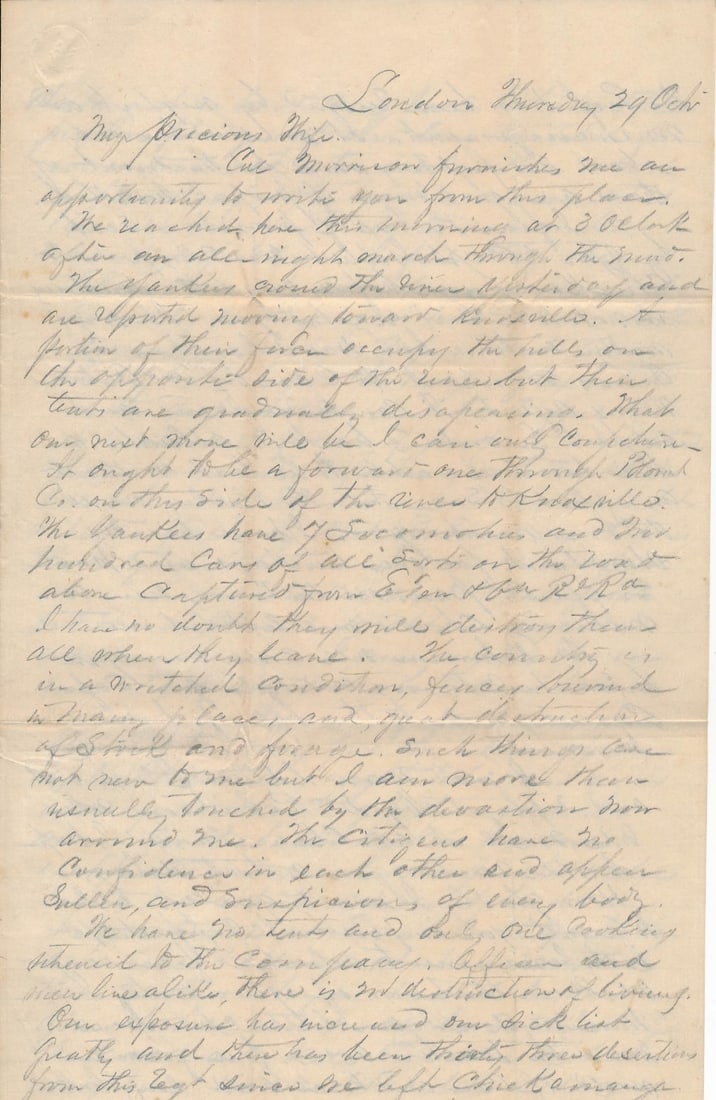 London Thursday 29 Octr
My Precious Wife.
Col Morrison furnishes me an
opportunity to write you from this place.
We reached here this morning at 3 OClock
after an all night march through the mud.
The Yankees crossed the river yesterday and
are reported moving toward Knoxville. A
portion of their force occupy the hills on
the opposite side of the river but their
tents are gradually disapearing. What
our next move will be I can only conjecture
It ought to be a forward one through Blount
Co. on this side of the river to Knoxville.
The Yankees have 7 Locomotives and two
hundred Cars of all Sorts on the road
above Captured from E Ten & Va R Rd
I have no doubt they will destroy them
all when they leave. The country is
in a wretched condition, fences burned
in many places and great destruction
of Stock and forage. Such things are
not new to me but I am more than
usually touched by the devastion now
around me. The Citizens have no
Confidence in each other and appear
Sullen, and Suspicious of every body.
We have no tents and only one Cooking
utensil to the Company. Officers and
men live alike, there is no distinction of living.
Our exposure has increased our Sick list
greatly and there has been thirty three desertions
from this Regt since we left Chickamauga.